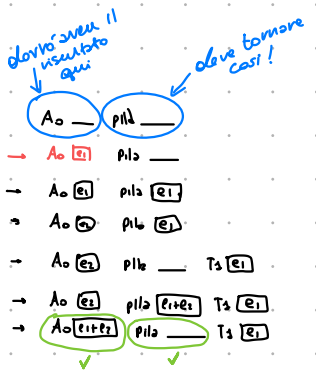 dovrò avere il
risultato
qui
deve tornare
così!
A0 __ pila __
→ A0 e1 pila __
→ A0 e1 pila e1
→ A0 e2 pila e1
→ A0 e2 pila __ T1 e1
→ A0 e2 pila e1+e2 T1 e1
→ A0 e1+e2 pila __ T1 e1